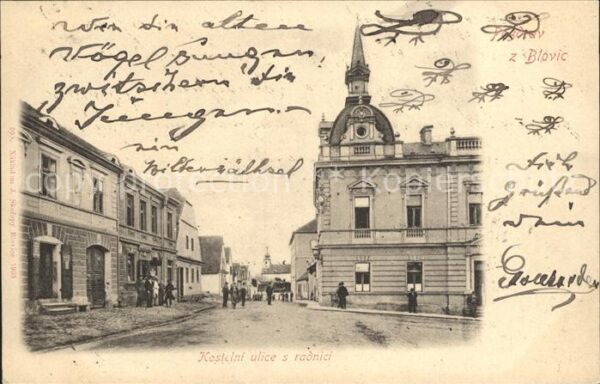 Wie die alten
Vögel sungen,
zwitschern die
Jungen.
ein
Bilderräthsel
Pozdrav
z Blovic
Dich
grüßend
dein
Kostelní ulice s radnicí